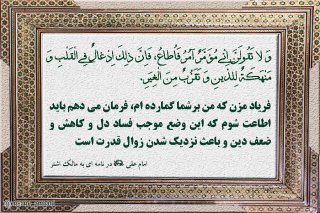 وَ لاَ تَقُولَنَّ إِنِّي مُؤَمَّرٌ آمُرُ فَأُطَاعُ، فَإِنَّ ذٰلِكَ إِدْغَالٌ فِي الْقَلْبِ وَ
مَنْهَكَةٌ لِلدِّينِ وَ تَقَرُّبٌ مِنَ الْغِيَرِ.
فریاد مزن که من برشما گمارده ام، فرمان می دهم باید
اطاعت شوم که این وضع موجب فساد دل و کاهش و
ضعف دین و باعث نزدیک شدن زوال قدرت است
امام علی در نامه ای به مالک اشتر